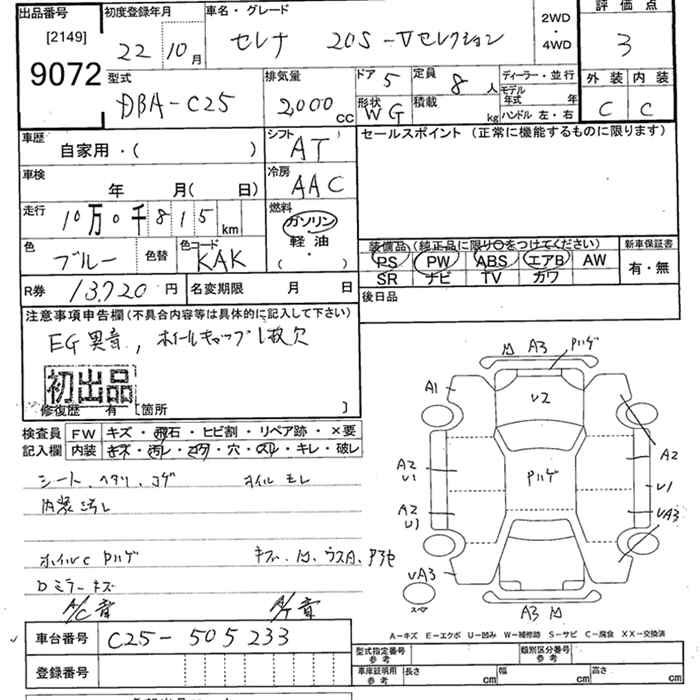 出品番号 初度登録年月 車名・グレード 2WD・4WD 評価点
[2149] 22 10月 セレナ 20S-Vセレクション 3
9072
型式 排気量 ドア 5 定員 8人 ディーラー・並行 外装 内装
DBA-C25 2,000 CC 形状 WG 積載 kg モデル年式 年 C C
ハンドル 左・右
車歴 シフト セールスポイント (正常に機能するものに限ります)
自家用・( ) AT
車検 冷房
年 月( 日) AAC
走行 燃料
10万0千815km ガソリン
軽油
・
( )
色 ブルー 色替 色コード KAK
装備品 (純正品に限り○をつけてください) 新車保証書
PS PW ABS エアB AW 有・無
SR ナビ TV カワ
R券 13,720円 名変期限 月 日 後日品
注意事項申告欄(不具合内容等は具体的に記入して下さい)
EG異音, ホイールキャップ1枚欠
初出品
修復歴 有 [箇所 ]
検査員 FW キズ・飛石・ヒビ割・リペア跡・×要
記入欄 内装 キズ・汚レ・コゲ・穴・スレ・キレ・破レ
シート.ヘタリ.コゲ オイルモレ
内装汚レ
ホイルC Pハゲ
Dミラーキズ
A/C音 A/T音
A3 Pハゲ
A1 V2
A2 Pハゲ A2
V1 V1
A2 VA3
V1
VA3
スペア A3
A-キズ E-エクボ U-凹み W-補修跡 S-サビ C-腐食 XX-交換済
車台番号 C25-505233
型式指定番号 参考 類別区分番号 参考
登録番号 車庫証明用 参考 長さ cm 幅 cm 高さ cm